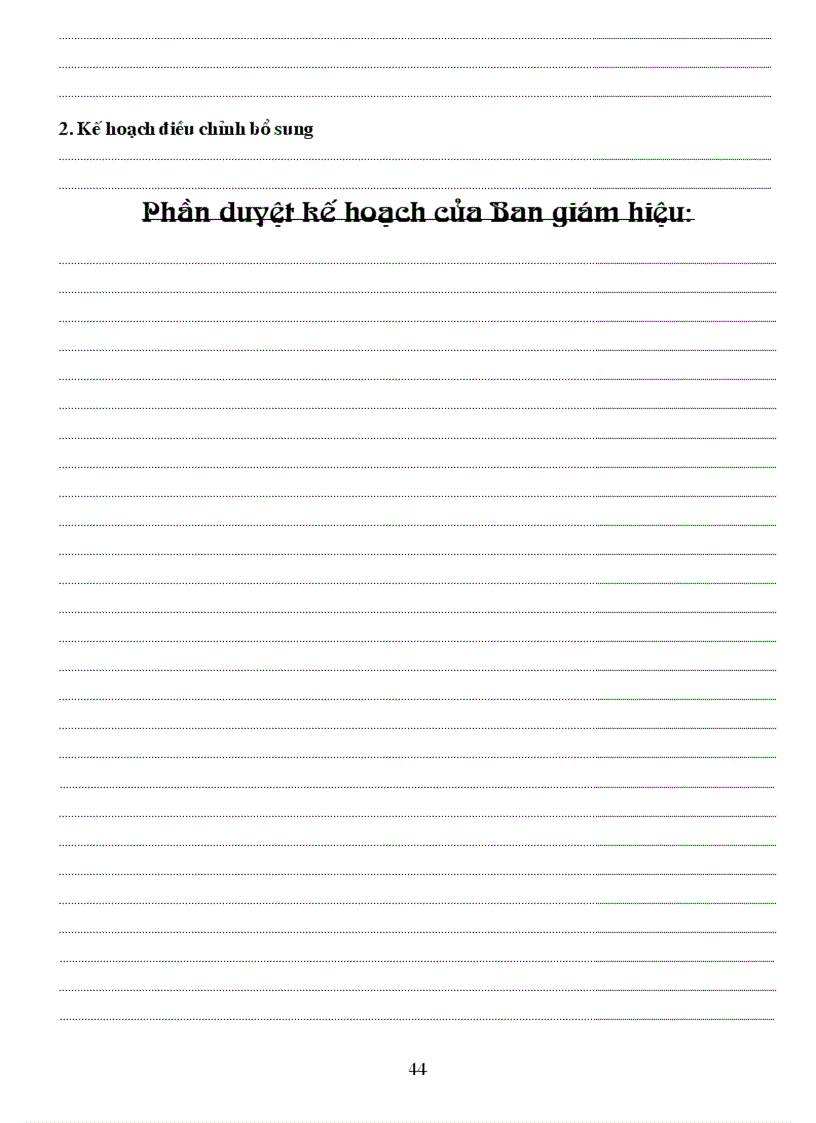 2. Kế hoạch điều chỉnh bổ sung
Phần duyệt kế hoạch của Ban giám hiệu:
44